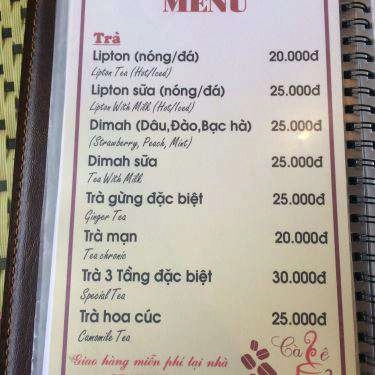 MENU
Trà
Lipton (nóng/đá) 20.000đ
Lipton Tea (Hot/Iced)
Lipton sữa (nóng/đá) 25.000đ
Lipton With Milk (Hot/Iced)
Dimah (Dâu,Đào,Bạc hà) 25.000đ
(Strawberry, Peach, Mint)
Dimah sữa 25.000đ
Tea With Milk
Trà gừng đặc biệt 25.000đ
Ginger Tea
Trà mạn 20.000đ
Tea chronic
Trà 3 Tầng đặc biệt 30.000đ
Special Tea
Trà hoa cúc 25.000đ
Camomile Tea
Giao hàng miễn phí tại nhà